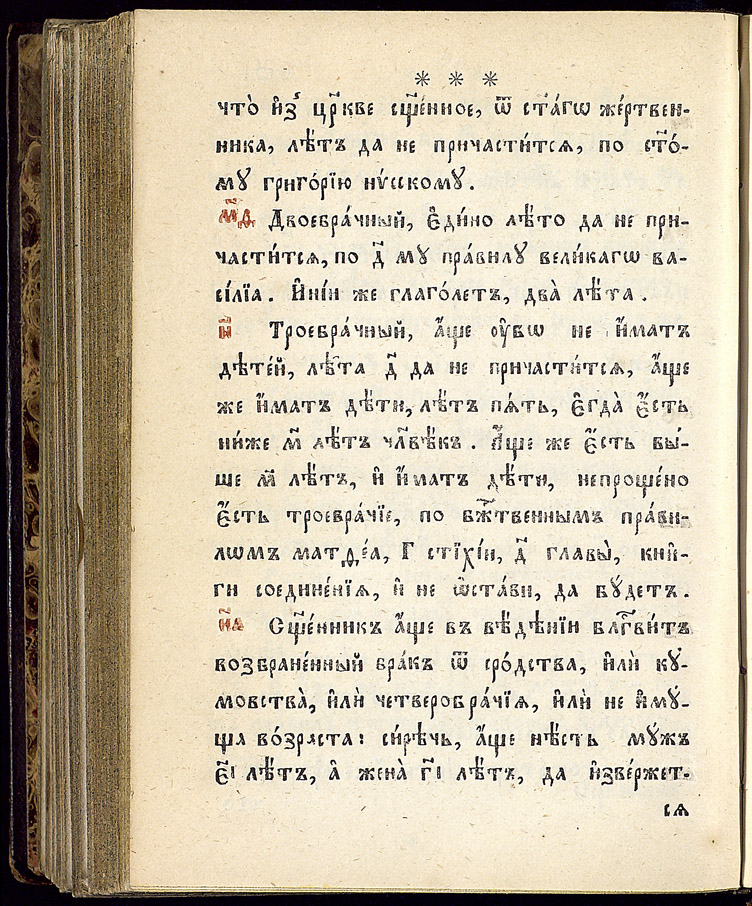 * * *
что̀ и҆з̾ цр҃кве сщ҃е́нное, ѿ ст҃а́гѡ же́ртвен-
ника, лѣ́тъ да не причасти́тсѧ, по ст҃о́-
мꙋ григо́рїю ни́сскомꙋ.
м҃ѳ Двоебра́чный, є҆ди́но лѣ́то да не при-
части́тсѧ, по д҃ мꙋ пра́вилꙋ вели́кагѡ ва-
сі́лїа. И҆ні́и же глаго́летъ, два̀ лѣ̑та.
н҃ Троебра́чный, а҆́ще ᲂу҆́бѡ не и҆́матъ
дѣте́й, лѣ̑та д҃ да не причасти́тсѧ, а҆́ще
же и҆́матъ дѣ́ти, лѣ́тъ пѧ́ть, є҆гда̀ є҆́сть
ни́же м҃ лѣ́тъ чл҃вѣ́къ. А҆́ще же є҆́сть вы́-
ше м҃ лѣ́тъ, и҆ и҆́матъ дѣ́ти, непроще́но
є҆́сть троебра́чїе, по бж҃твеннымъ пра́ви-
лѡмъ матѳе́а, Г стїхі́и, д҃ главы̀, кни́-
ги соедине́нїѧ, и҆ не ѡ҆ста́ви, да бꙋ́детъ.
н҃а Сщ҃е́нникъ а҆́ще въ вѣ́дѣнїи блг҃ви́тъ
возбране́нный бра́къ ѿ сро́дства, и҆лѝ кꙋ-
мовства̀, и҆лѝ четверобра́чїѧ, и҆лѝ не и҆мꙋ́-
ща во́зраста: си́рѣчь, а҆́ще нѣ́сть мꙋ́жъ
є҃і лѣ́тъ, а҆ жена̀ г҃і лѣ́тъ, да и҆зве́ржет-
сѧ